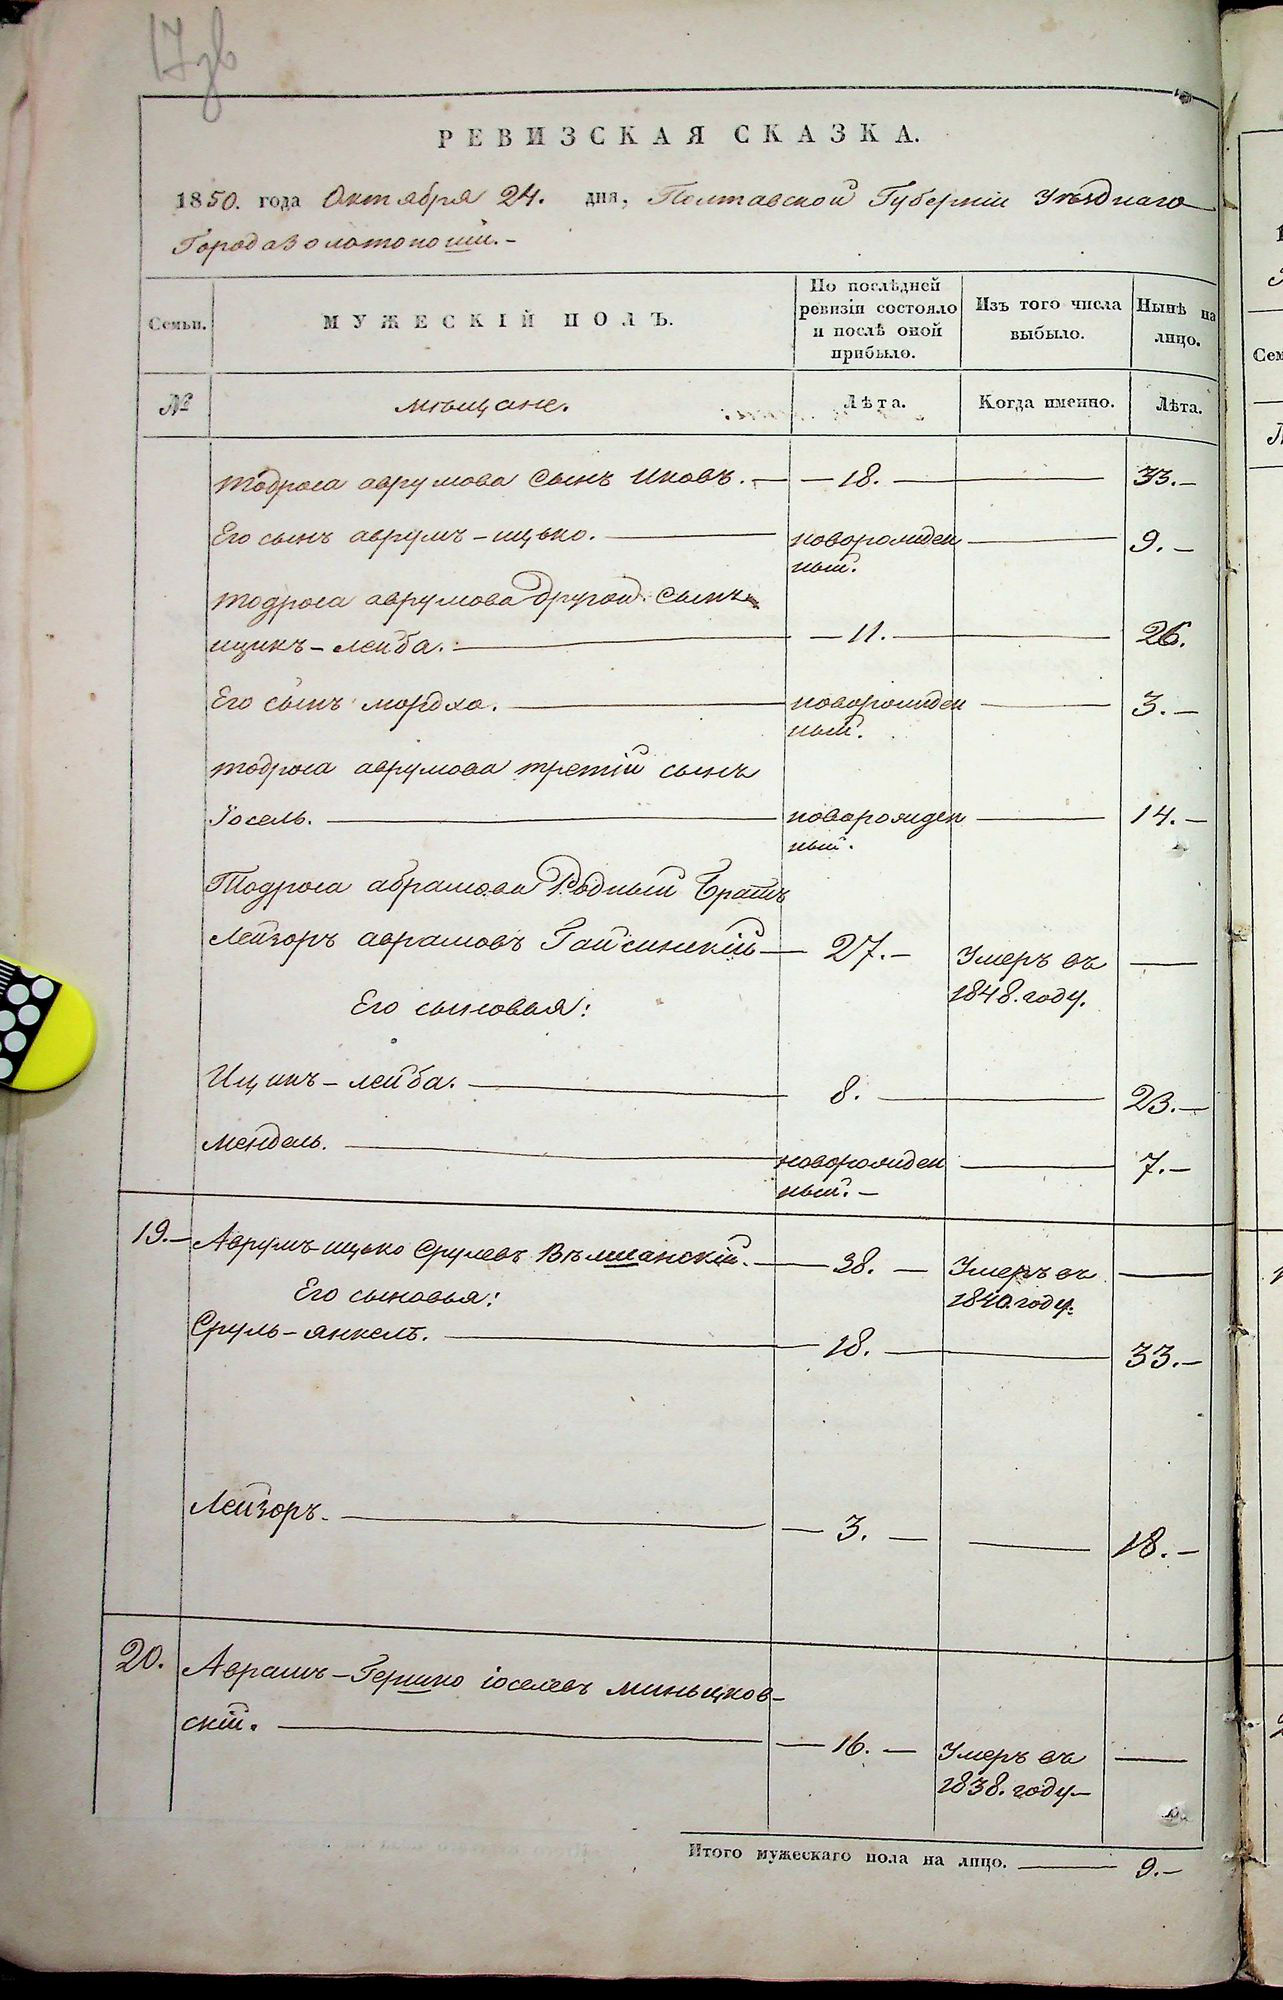 17зв
РЕВИЗСКАЯ СКАЗКА.
1850. года Октября 24. дня, Полтавской Губерніи Уѣзднаго
Города Золотоноши.-
Семьи. МУЖЕСКІЙ ПОЛЪ. По послѣдней ревизіи состояло и послѣ оной прибыло. Изъ того числа выбыло. Нынѣ на лицо.
№ мѣщане. Лѣта. Когда именно. Лѣта.
тодроса аврумова сынъ Иковъ. — 18. — 33.-
Его сынъ аврумъ-ицько. — новорожден 9.-
ный.
тодроса аврумова другой сынъ
ицикъ-лейба. — 11. — 26.
Его сынъ мордхо. — новорожден 3.-
ный.
тодроса аврумова третій сынъ
Іосель. — новорожден 14.-
ный.
Тодроса абрамова Родный братъ
Лейзоръ аврамовъ Гайсинскій — 27.- Умеръ въ —
1848. году.
Его сыновья:
Ицикъ-лейба. — 8. — 23.-
мендель. — новорожден — 7.-
ный.-
19.- Аврумъ-ицько Срулевъ Вѣлшанскій. — 38. — Умеръ въ —
Его сыновья: 1840. году.
Сруль-янкель. — 18. — 33.-
Лейзоръ. — 3. — 18.-
20. Аврамъ-Гершко іоселевъ миньцков-
скій. — 16. — Умеръ въ —
1838. году-
Итого мужескаго пола на лицо. — 9.-